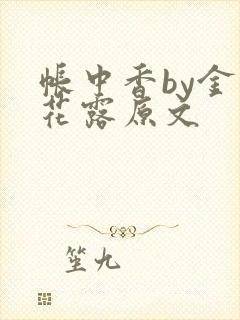 帐中香by金
花露原文
笙九